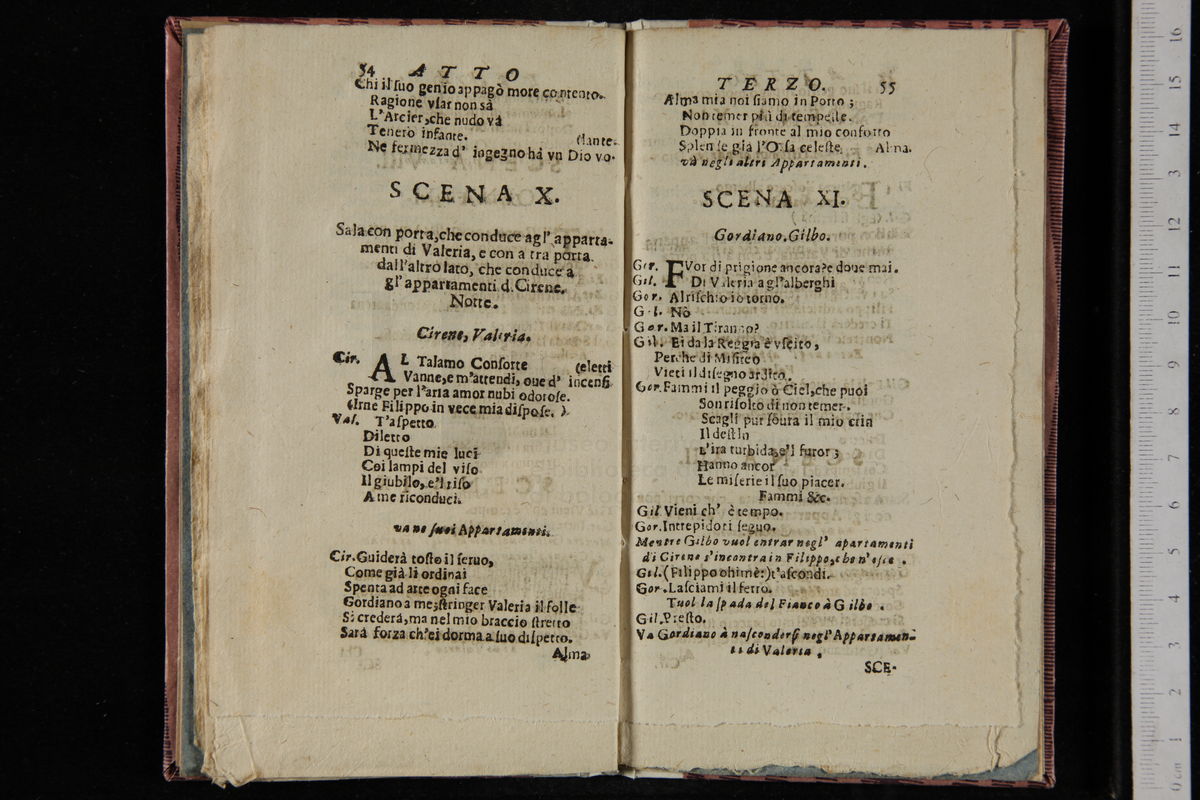 54 ATTO
Chi il ſuo genio appagò more contento.
Ragione vſar non sà
L'Arcier, che nudo và
Tenero infante. (lante.
Ne fermezza d' ingegno hà vn Dio vo-
SCENA X.
Sala con porta, che conduce agl' apparta-
menti di Valeria, e con a tra porta
dall'altro lato, che conduce a
gl' appartamenti d. Cirene.
Notte.
Cirene, Valeria.
Cir. AL Talamo Conſorte (eletti
Vanne, e m'attendi, oue d' incenſi
Sparge per l'aria amor nubi odoroſe.
(Irne Filippo in vece mia diſpoſe. )
Val. T'aſpetto
Diletto
Di queſte mie luci
Coi lampi del viſo
Il giubilo, e'l riſo
A me riconduci.
va ne ſuoi Appartamenti.
Cir. Guiderà toſto il ſeruo,
Come già li ordinai
Spenta ad arte ogni face
Gordiano a me; ſtringer Valeria il folle
Si crederà, ma nel mio braccio ſtretto
Sarà forza ch'ei dorma a ſuo diſpetto.
Alma
TERZO. 55
Alma mia noi ſiamo in Porto ;
Non temer più di tempeſte.
Doppia in fronte al mio conforto
Splen ſe già l'Orſa celeſte. Alma.
và negli altri Appartamenti.
SCENA XI.
Gordiano. Gilbo.
Gor. FVor di prigione ancora? e doue mai.
Gil. Di Valeria agl'alberghi
Gor. Al riſchio io torno.
Gil. Nò
Gor. Ma il Tiranno?
Gil. Ei da la Reggia è vſcito,
Perche di Miſiteo
Vieti il diſegno ardito.
Gor. Fammi il peggio ò Ciel, che puoi
Son riſolto di non temer.
Scagli pur ſoura il mio crin
Il deſtin
L'ira turbida, e'l furor ;
Hanno ancor
Le miſerie il ſuo piacer.
Fammi &c.
Gil. Vieni ch' è tempo.
Gor. Intrepido ti ſeguo.
Mentre Gilbo vuol entrar negl' apartamenti
di Cirene s'incontra in Filippo, che n'eſce .
Gil. (Filippo ohimè:) t'aſcondi.
Gor. Laſciami il ferro.
Tuol la ſpada del Fianco à Gilbo .
Gil. Preſto.
Va Gordiano à naſconderſi negl' Appartamen-
ti di Valeria .
SCE-